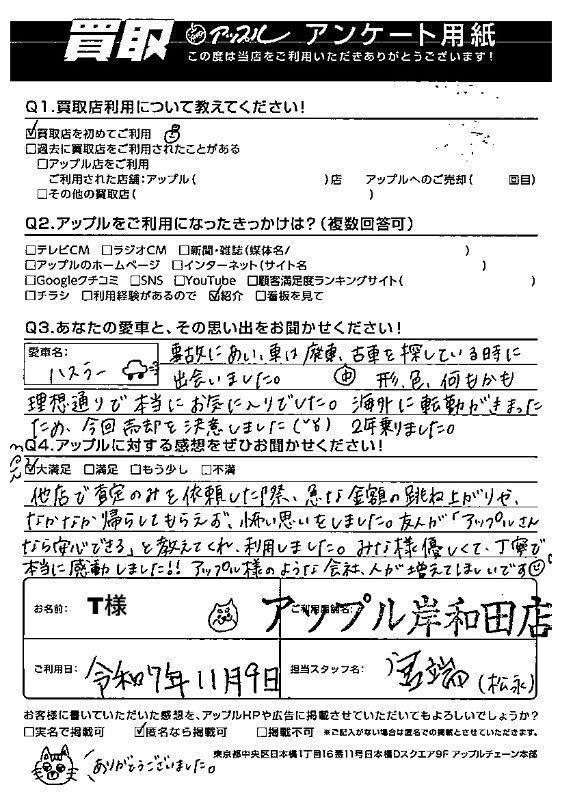 買取 アップル アンケート用紙
この度は当店をご利用いただきありがとうございます!
Q1.買取店利用について教えてください!
☑買取店を初めてご利用
□過去に買取店をご利用されたことがある
□アップル店をご利用
ご利用された店舗:アップル( )店 アップルへのご売却( 回目)
□その他の買取店( )
Q2.アップルをご利用になったきっかけは?(複数回答可)
□テレビCM □ラジオCM □新聞・雑誌(媒体名/ )
□アップルのホームページ □インターネット(サイト名 )
□Googleクチコミ □SNS □YouTube □顧客満足度ランキングサイト( )
□チラシ □利用経験があるので ☑紹介 □看板を見て
Q3.あなたの愛車と、その思い出をお聞かせください!
愛車名:
ハスラー
事故にあい、車は廃車、古車を探している時に
出会いました。 形、色、何もかも
理想通りで本当にお気に入りでした。海外に転勤がきまった
ため、今回売却を決意しました 2年乗りました。
Q4.アップルに対する感想をぜひお聞かせください!
☑大満足 □満足 □もう少し □不満
他店で査定のみを依頼した際、急な金額の跳ね上がりや、
なかなか帰らしてもらえず、怖い思いをしました。友人が「アップルさん
なら安心できる」と教えてくれ、利用しました。みな様優しくて、丁寧で
本当に感動しました!! アップル様のような会社、人が増えてほしいです
お名前: T様
ご利用店舗名: アップル岸和田店
ご利用日: 令和7年11月9日
担当スタッフ名: (松永)
お客様に書いていただいた感想を、アップルHPや広告に掲載させていただいてもよろしいでしょうか?
□実名で掲載可 ☑匿名なら掲載可 □掲載不可 ※ご記入がない場合は匿名での掲載とさせていただきます。
東京都中央区日本橋1丁目16番11号日本橋Dスクエア9F アップルチェーン本部
ありがとうございました。